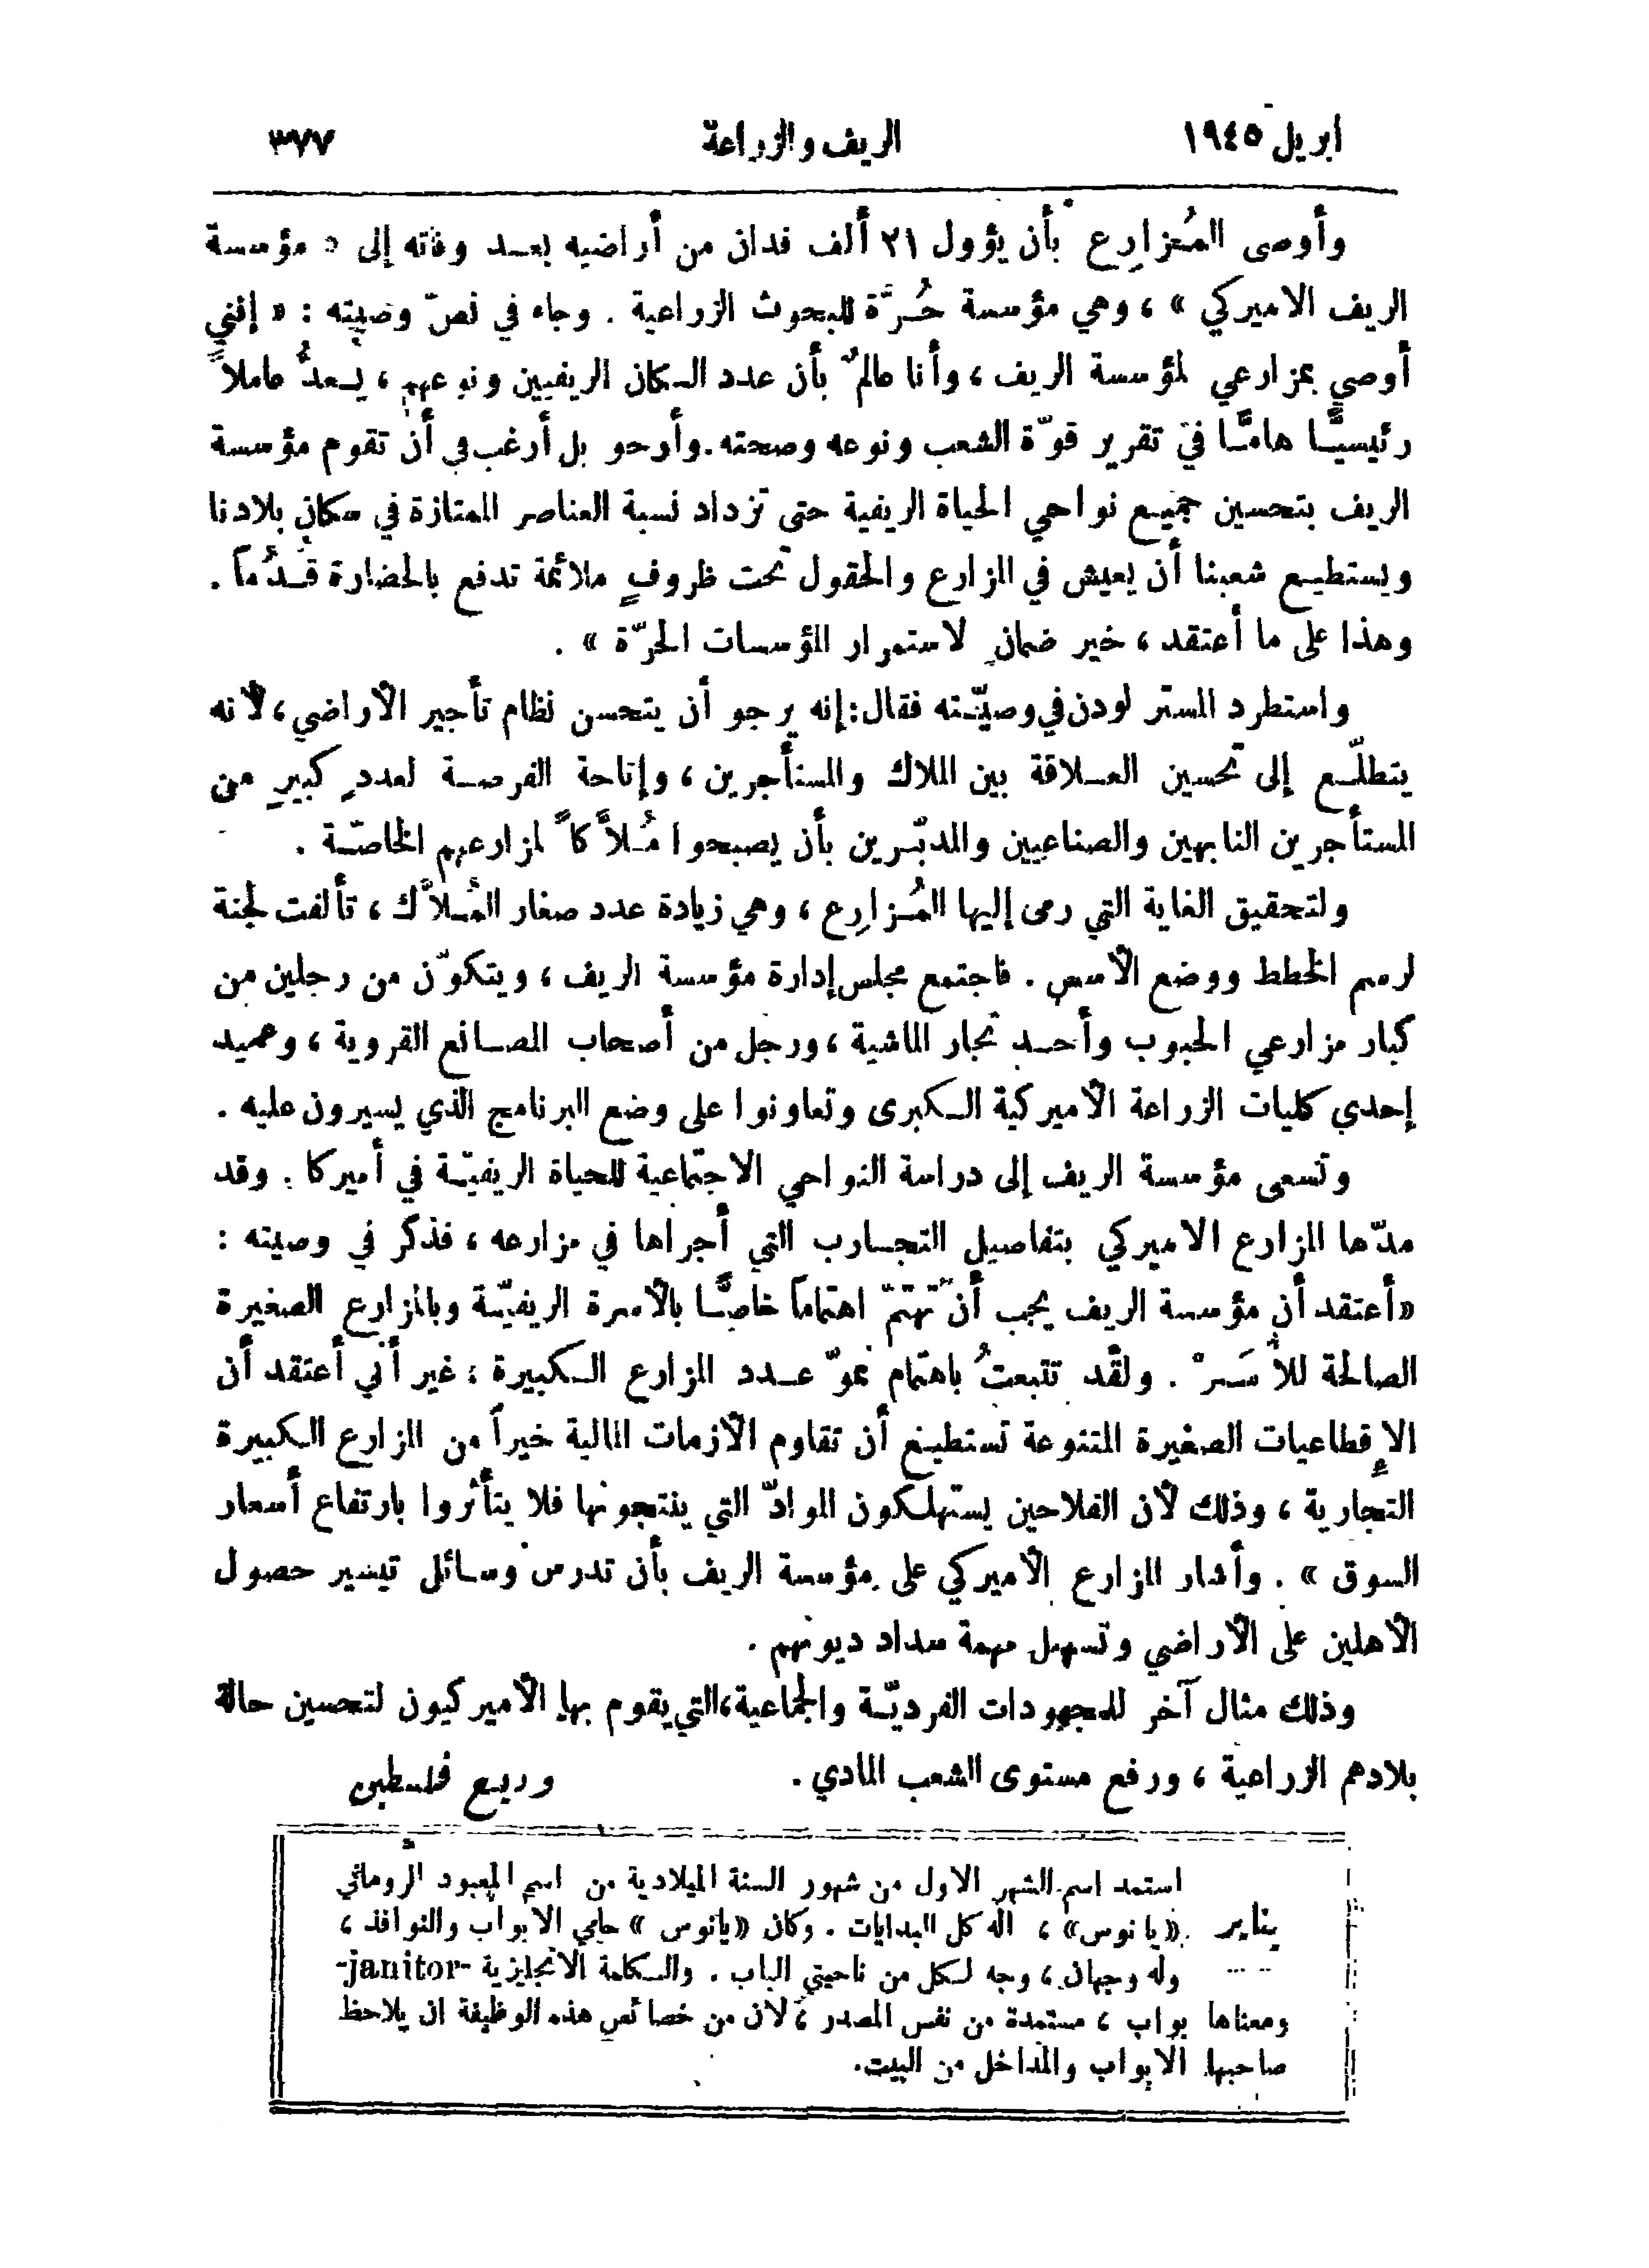 ابريل ١٩٤٥ الريف والزراعة ٣٧٧
وأوصى المُزارِع بأن يؤول ٢١ ألف فدان من أراضيه بعد وفاته إلى « مؤسسة
الريف الاميركي » ، وهي مؤسسة حُرَّة للبحوث الزراعية . وجاء في نصّ وصيته : « إنني
أوصي بمزارعي لمؤسسة الريف ، وأنا عالمٌ بأن عدد السكان الريفيين ونوعهم ، يُعدُّ عاملاً
رئيسيًّا هامًّا في تقرير قوّة الشعب ونوعه وصحته . وأرجو بل أرغب في أن تقوم مؤسسة
الريف بتحسين جميع نواحي الحياة الريفية حتى تزداد نسبة العناصر الممتازة في سكان بلادنا
ويستطيع شعبنا أن يعيش في المزارع والحقول تحت ظروفٍ ملائمة تدفع بالحضارة قدُماً .
وهذا على ما أعتقد ، خير ضمانٍ لاستمرار المؤسسات الحرّة » .
واستطرد المستر لودن في وصيّته فقال : إنه يرجو أن يتحسن نظام تأجير الأراضي ، لأنه
يتطلّع إلى تحسين العلاقة بين الملاك والمستأجرين ، وإتاحة الفرصة لعددٍ كبيرٍ من
المستأجرين النابهين والصناعيين والمدبّرين بأن يصبحوا مُلاَّكاً لمزارعهم الخاصّة .
ولتحقيق الغاية التي رمى إليها المُزارِع ، وهي زيادة عدد صغار المُلاَّك ، تألفت لجنة
لرسم الخطط ووضع الأسس . فاجتمع مجلس إدارة مؤسسة الريف ، ويتكوّن من رجلين من
كبار مزارعي الحبوب وأحد تجار الماشية ، ورجل من أصحاب المصانع القروية ، وعميد
إحدي كليات الزراعة الأميركية الكبرى وتعاونوا على وضع البرنامج الذي يسيرون عليه .
وتسعى مؤسسة الريف إلى دراسة النواحي الاجتماعية للحياة الريفيّة في أميركا . وقد
مدّها المزارع الاميركي بتفاصيل التجارب التي أجراها في مزارعه ، فذكر في وصيته :
« أعتقد أن مؤسسة الريف يجب أن تهتمّ اهتماماً خاصًّا بالأسرة الريفيّة وبالمزارع الصغيرة
الصالحة للأُسَر . ولقد تتبعتُ باهتمام نموّ عدد المزارع الكبيرة ، غير أني أعتقد أن
الإقطاعيات الصغيرة المتنوعة تستطيع أن تقاوم الأزمات المالية خيراً من المزارع الكبيرة
التجارية ، وذلك لأن الفلاحين يستهلكون الموادّ التي ينتجونها فلا يتأثروا بارتفاع أسعار
السوق » . وأشار المزارع الأميركي على مؤسسة الريف بأن تدرس وسائل تيسير حصول
الأهلين على الأراضي وتسهيل مهمة سداد ديونهم .
وذلك مثال آخر للمجهودات الفرديّة والجماعية ، التي يقوم بها الأميركيون لتحسين حالة
بلادهم الزراعية ، ورفع مستوى الشعب المادي . وديع فلسطين
استمد اسم الشهر الاول من شهور السنة الميلادية من اسم المعبود الروماني
يناير « يانوس » ، اله كل البدايات . وكان « يانوس » حامي الابواب والنوافذ ،
وله وجهان ، وجه لكل من ناحيتي الباب . والكلمة الانجليزية -janitor-
ومعناها بواب ، مستمدة من نفس المصدر ، لان من خصائص هذه الوظيفة ان يلاحظ
صاحبها الابواب والمداخل من البيت .